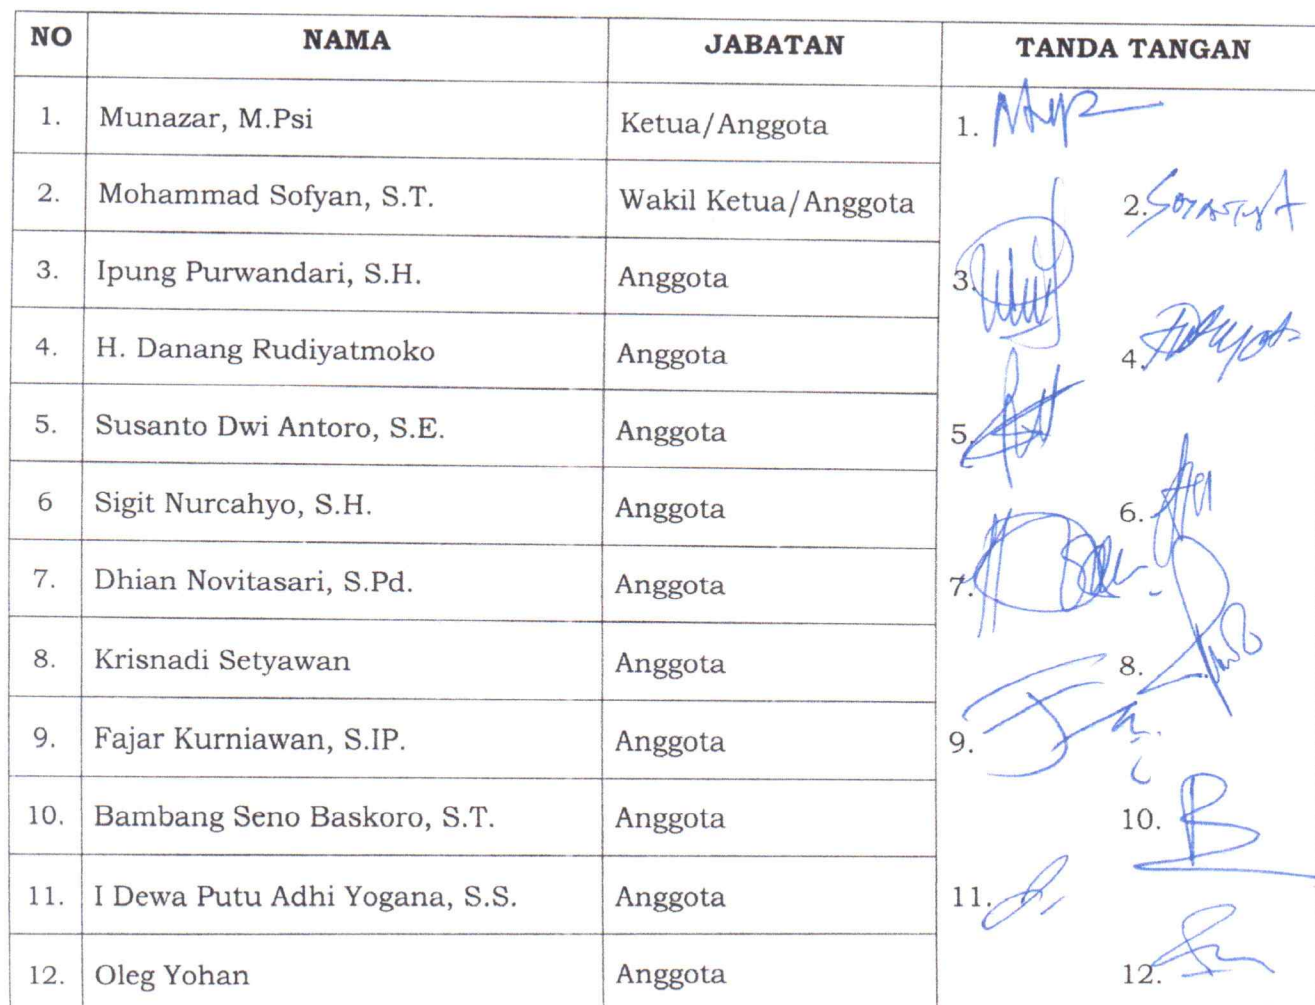 NO NAMA JABATAN TANDA TANGAN
1. Munazar, M.Psi Ketua/Anggota 1.
2. Mohammad Sofyan, S.T. Wakil Ketua/Anggota 2.
3. Ipung Purwandari, S.H. Anggota 3.
4. H. Danang Rudiyatmoko Anggota 4.
5. Susanto Dwi Antoro, S.E. Anggota 5.
6 Sigit Nurcahyo, S.H. Anggota 6.
7. Dhian Novitasari, S.Pd. Anggota 7.
8. Krisnadi Setyawan Anggota 8.
9. Fajar Kurniawan, S.IP. Anggota 9.
10. Bambang Seno Baskoro, S.T. Anggota 10.
11. I Dewa Putu Adhi Yogana, S.S. Anggota 11.
12. Oleg Yohan Anggota 12.